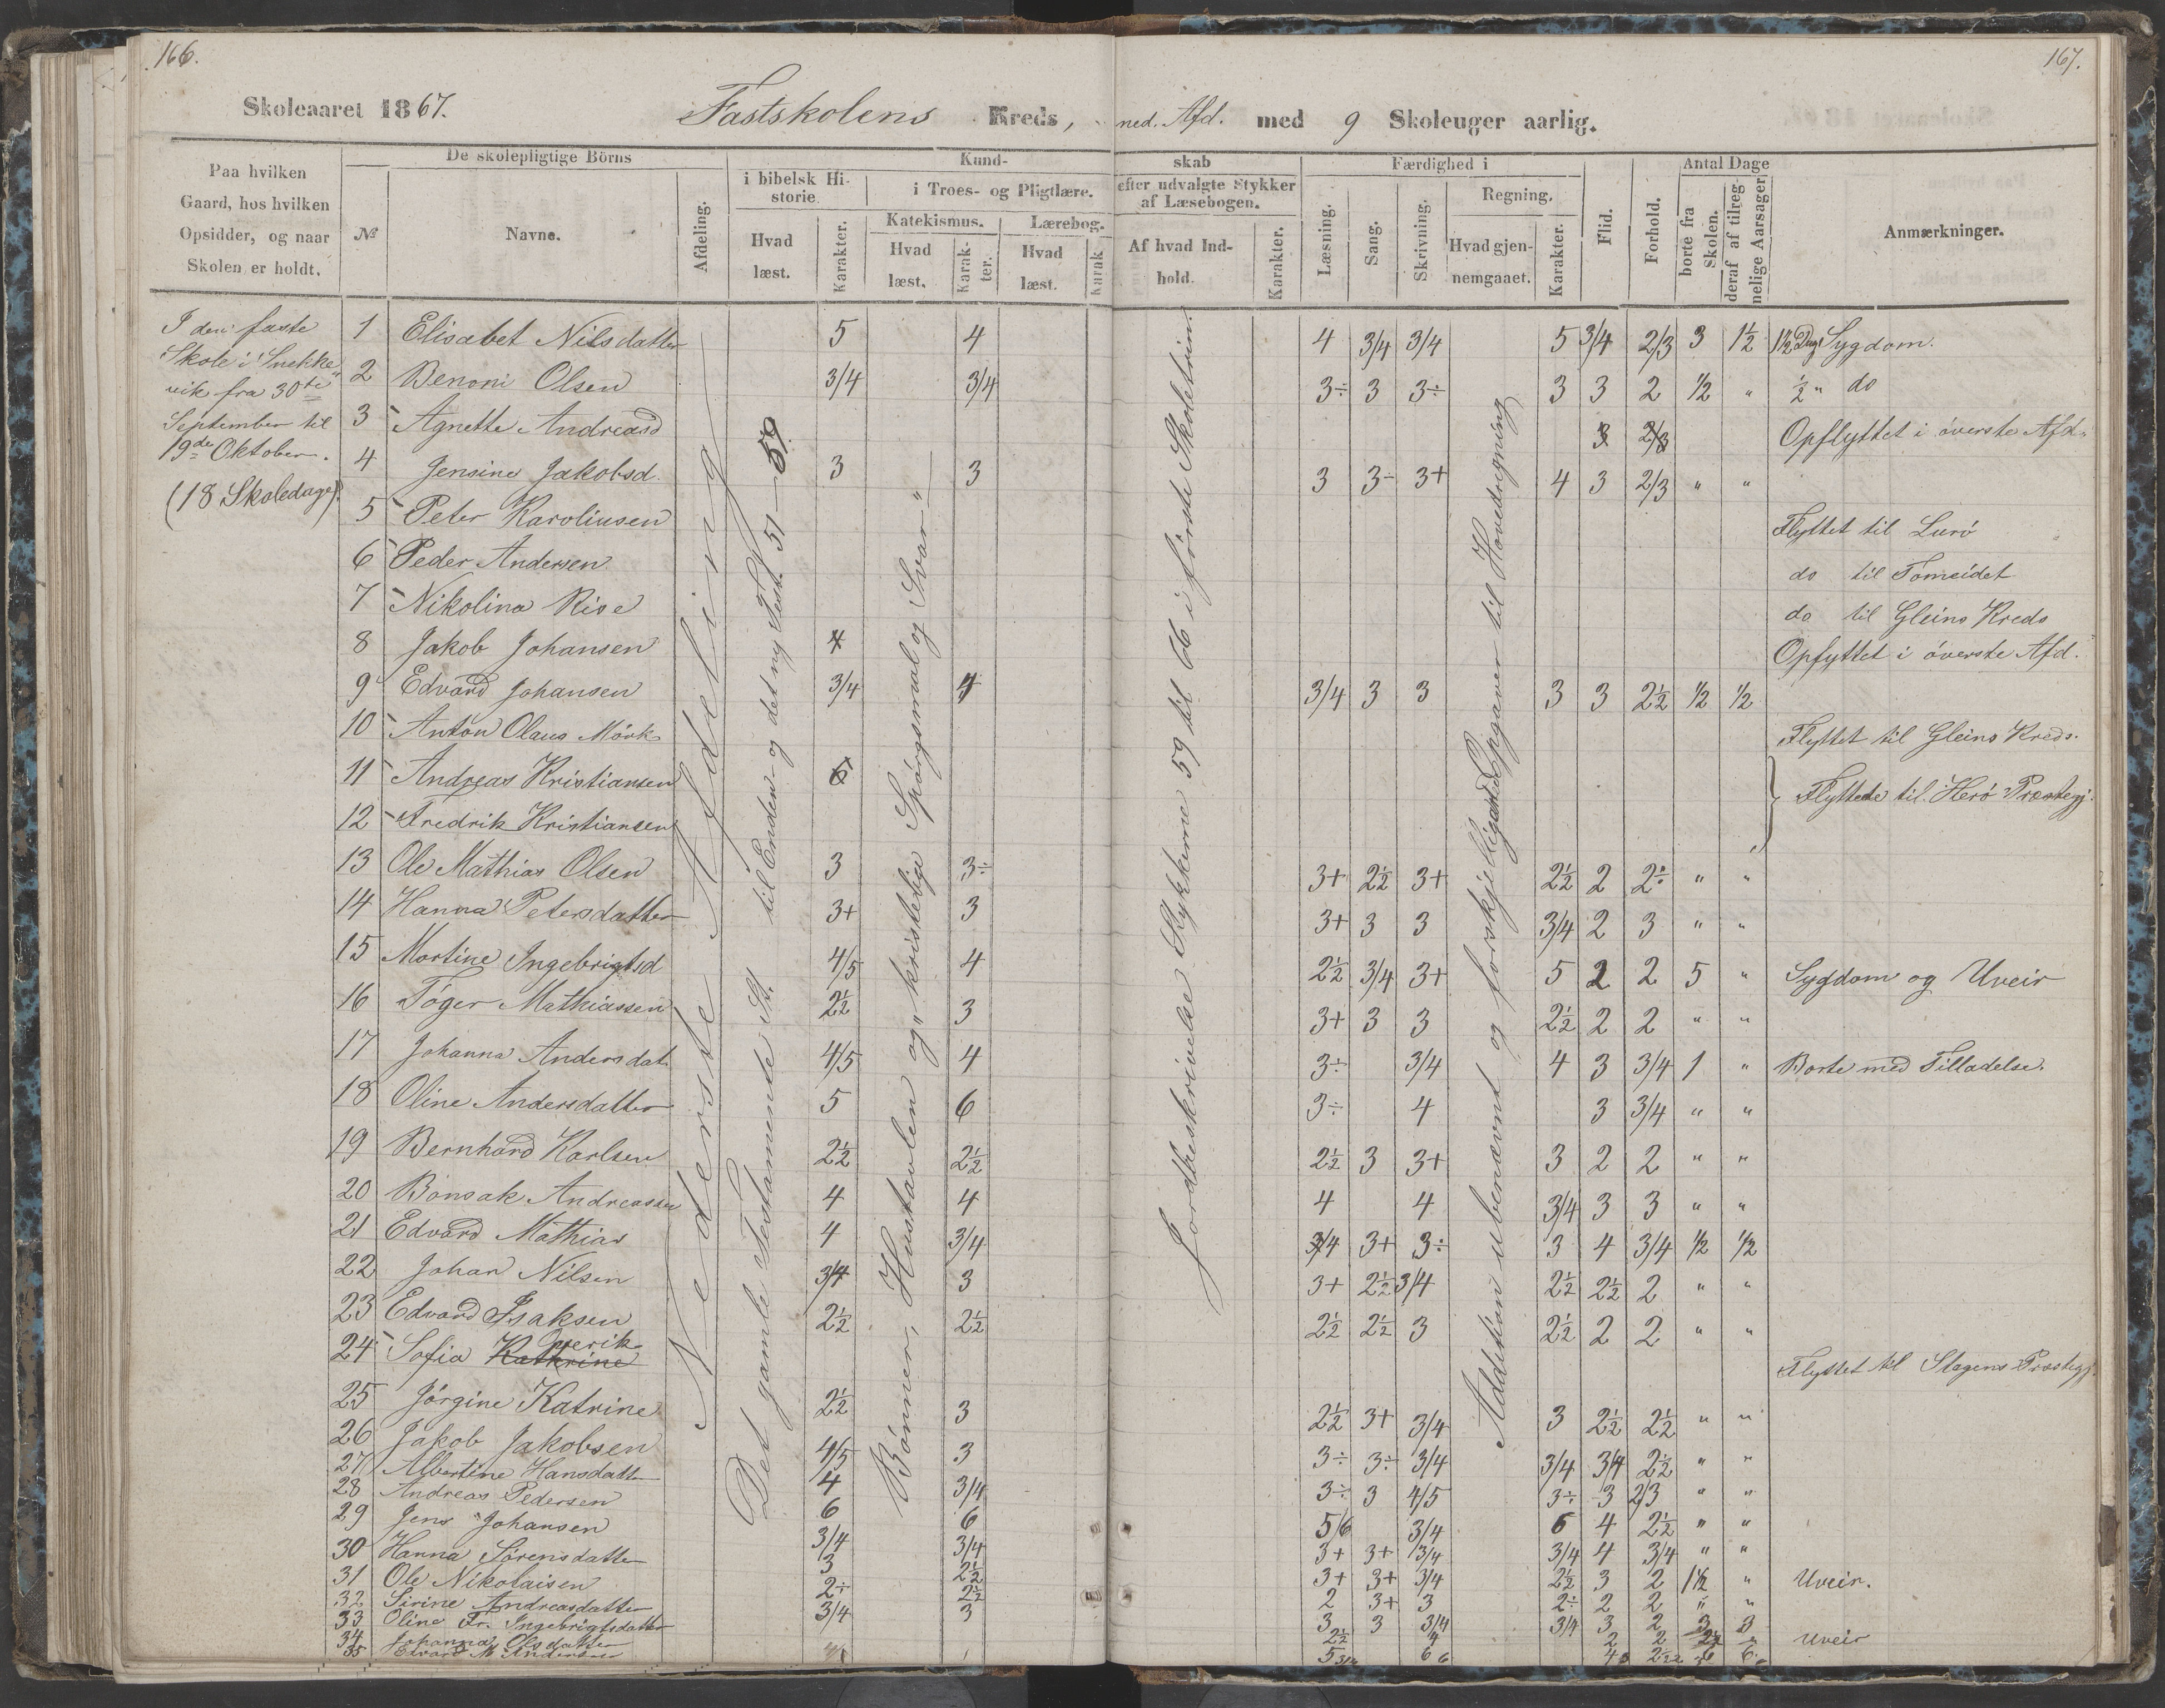 166.
167.
Skoleaaret 1867.
Fastskolens Kreds, ned. Afd. med 9 Skoleuger aarlig.
Paa hvilken Gaard, hos hvilken Opsidder, og naar Skolen er holdt.
De skolepligtige Börns
№
Navne.
Afdeling.
Kundskab
i bibelsk Historie
Hvad læst.
Karakter.
i Troes- og Pligtlære.
Katekismus.
Hvad læst.
Karakter.
Lærebog.
Hvad læst.
Karak
efter udvalgte Stykker af Læsebogen.
Af hvad Indhold.
Karakter.
Færdighed i
Læsning.
Sang.
Skrivning.
Regning.
Hvad gjennemgaaet.
Karakter.
Flid.
Forhold.
Antal Dage
borte fra Skolen.
deraf af tilregnelige Aarsager
Anmærkninger.
I den faste
Skole i Snekke
vik fra 30te
September til
19de Oktober.
(18 Skoledage).
Nederste Afdeling
Det gamle Testamente St. til Enden og det ny Test. 51 — 59
Bönner, Hustavlen og "kristelige Spörgsmaal og Svar"
Jordbeskrivelse Stykkerne 59 til 66 i förste Skoletrin.
Addition i ubenævnt og forskjelligartede Opgaver til Hovedregning
1 Elisabet Nilsdatter 5 4 4 3/4 3/4 5 3/4 2/3 3 1½ 1½ Dag Sygdom.
2 Benoni Olsen 3/4 3/4 3÷ 3 3÷ 3 3 2 ½ " ½ " do
3 Agnette Andreasd 3 2/3 Opflyttet i överste Afd.
4 Jensine Jakobsd. 3 3 3 3- 3+ 4 3 2/3 " "
5 Peter Karoliusen Flyttet til Lurö
6 Peder Andersen do til Tomeidet
7 Nikolina Rise do til Gleins Kreds
8 Jakob Johansen 4 Opfyttet i överste Afd.
9 Edvard Johansen 3/4 4 3/4 3 3 3 3 2½ ½ ½
10 Anton Olaus Mörk Flyttet til Gleins Kreds.
11 Andreas Kristiansen 6
12 Fredrik Kristiansen Flyttede til Herö Præstegj.
13 Ole Mathias Olsen 3 3÷ 3+ 2½ 3+ 2½ 2 2÷ " "
14 Hanna Petersdatter 3+ 3 3+ 3 3 3/4 2 3 " "
15 Martine Ingebrigtsd 4/5 4 2½ 3/4 3+ 5 2 2 5 " Sygdom og Uveir
16 Töger Mathiassen 2½ 3 3+ 3 3 2½ 2 2 " "
17 Johanna Andersdat. 4/5 4 3÷ 3/4 4 3 3/4 1 " Borte med Tilladelse.
18 Oline Andersdatter 5 6 3÷ 4 3 3/4 " "
19 Bernhard Karlsen 2½ 2½ 2½ 3 3+ 3 2 2 " "
20 Bonsak Andreassen 4 4 4 4 3/4 3 3 " "
21 Edvard Mathias 4 3/4 3/4 3+ 3÷ 3 4 3/4 ½ ½
22 Johan Nilsen 3/4 3 3+ 2½ 3/4 2½ 2½ 2 " "
23 Edvard Isaksen 2½ 2½ 2½ 2½ 3 2½ 2 2 " "
24 Sofia Kathrine Flyttet til Præstegj.
25 Jörgine Katrine 2½ 3 2½ 3+ 3/4 3 2½ 2½ " "
26 Jakob Jakobsen 4/5 3 3÷ 3÷ 3/4 3/4 3/4 2½ " "
27 Albertine Hansdatt 4 3/4 3÷ 3 4/5 3÷ 3 2/3 " "
28 Andreas Pedersen 6 6 5/6 3/4 6 4 2½ " "
29 Jens Johansen 3/4 3/4 3+ 3+ 3/4 3/4 4 3/4 " "
30 Hanna Sörensdatter 3 2½ 3+ 3+ 3/4 2½ 3 2 1½ " Uveir.
31 Ole Nikolaisen 2÷ 2½ 2 3+ 3 2÷ 2 2 " "
32 Sirine Andreasdatter 3/4 3 3 3 3/4 3/4 3 2 3 3
33 Oline Fr. Ingebrigtsdatter Uveir
34 Johanna Olsdatter
35 Edvard M Andersen